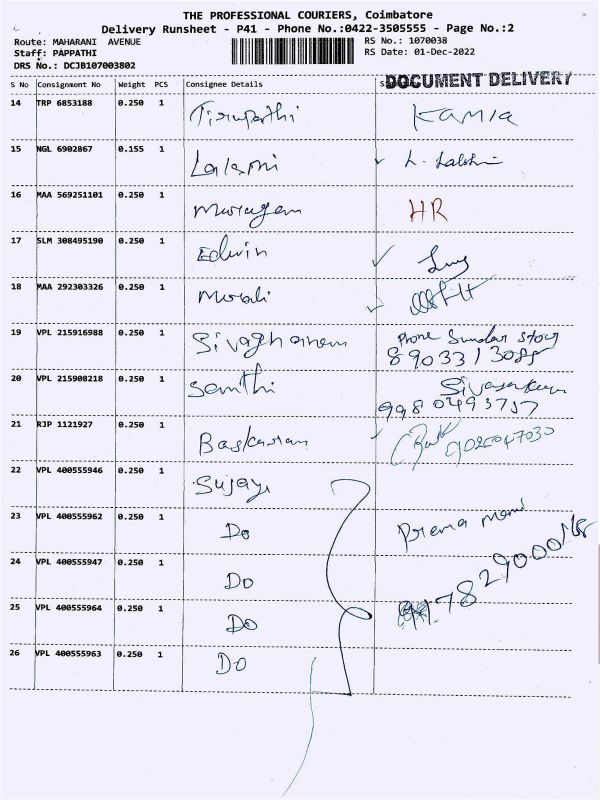 THE PROFESSIONAL COURIERS, Coimbatore
Delivery Runsheet - P41 - Phone No.:0422-3505555 - Page No.:2
Route: MAHARANI AVENUE
Staff: PAPPATHI
DRS No.: DCJB107003802
RS No.: 1070038
RS Date: 01-Dec-2022
DOCUMENT DELIVERY
S No Consignment No Weight PCS Consignee Details
14 TRP 6853188 0.250 1 Tirupathi Kamla
15 NGL 6902867 0.155 1 L. Lakshmi
16 MAA 569251101 0.250 1 Murugan HR
17 SLM 308495190 0.250 1 Edwin
18 MAA 292303326 0.250 1 Murali
19 VPL 215916988 0.250 1 Sivaghanam Phone Sundar
20 VPL 215908218 0.250 1 Senthi Sivasankar
21 RJP 1121927 0.250 1 Baskaran
22 VPL 400555946 0.250 1 Sujay
23 VPL 400555962 0.250 1 Do Prema
24 VPL 400555947 0.250 1 Do
25 VPL 400555964 0.250 1 Do
26 VPL 400555963 0.250 1 Do